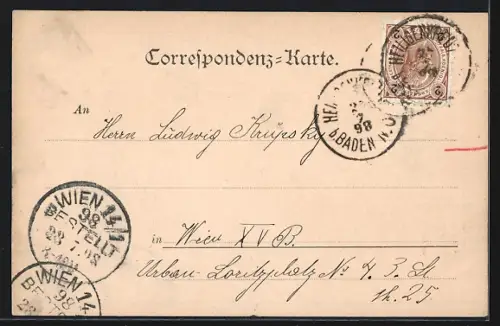 Correspondenz-Karte.
HEILIGENKREUZ
HEILIGENKREUZ
7
98
b. BADEN N.Ö
An
Herrn Ludwig Krupsky
WIEN 14/1
98
BESTELLT
23.7.98
in Wien XV B.
Urban-Loritzplatz No 4 3. St
th. 25
WIEN 14
98